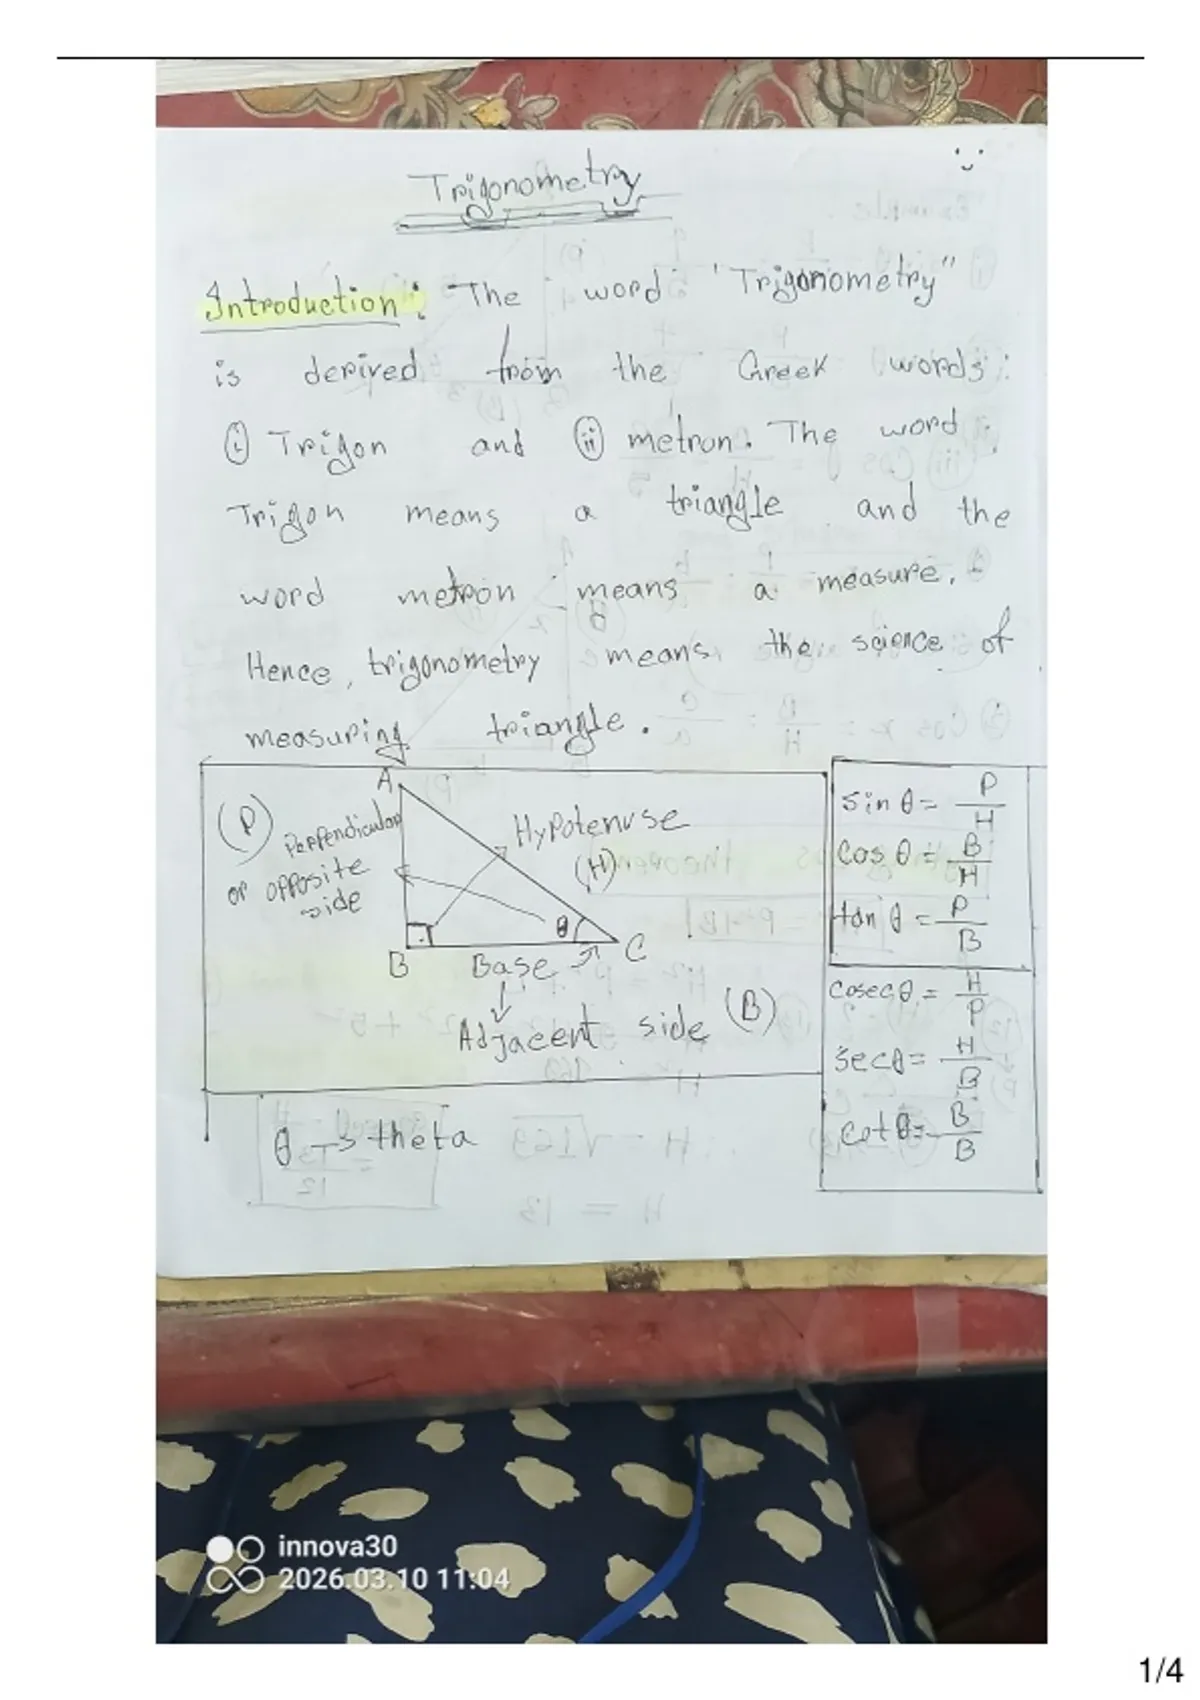 Trigonometry
Introduction : The word 'Trigonometry"
is derived from the Greek words :
(i) Trigon and (ii) metron. The word
Trigon means a triangle and the
word metron means a measure.
Hence, trigonometry means the science of
measuring triangle.
A
(P)
Perpendicular
or opposite
side
Hypotenuse
(H)
θ
B
Base
C
Adjacent side (B)
sin θ = P/H
cos θ = B/H
tan θ = P/B
cosec θ = H/P
sec θ = H/B
cot θ = B/B
θ → theta
innova30
2026.03.10 11:04
1/4